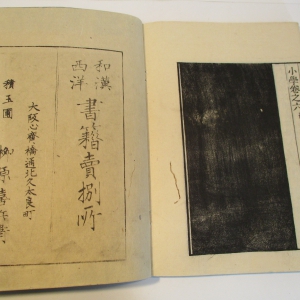 小學卷之六
和漢
西洋
書籍賣捌所
大阪心齋橋通北久太良町
積玉圃 柳原喜兵衛